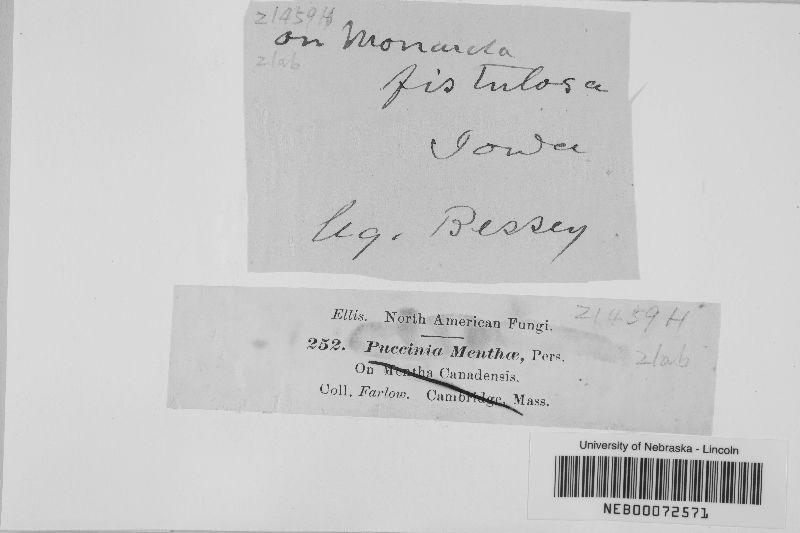 21459H
on Monarda
21ab
fistulosa
Iowa
leg. Bessey
Ellis. North American Fungi.
21459H
252. Puccinia Menthæ, Pers.
21ab
On Mentha Canadensis.
Coll. Farlow. Cambridge, Mass.
University of Nebraska - Lincoln
NEB00072571